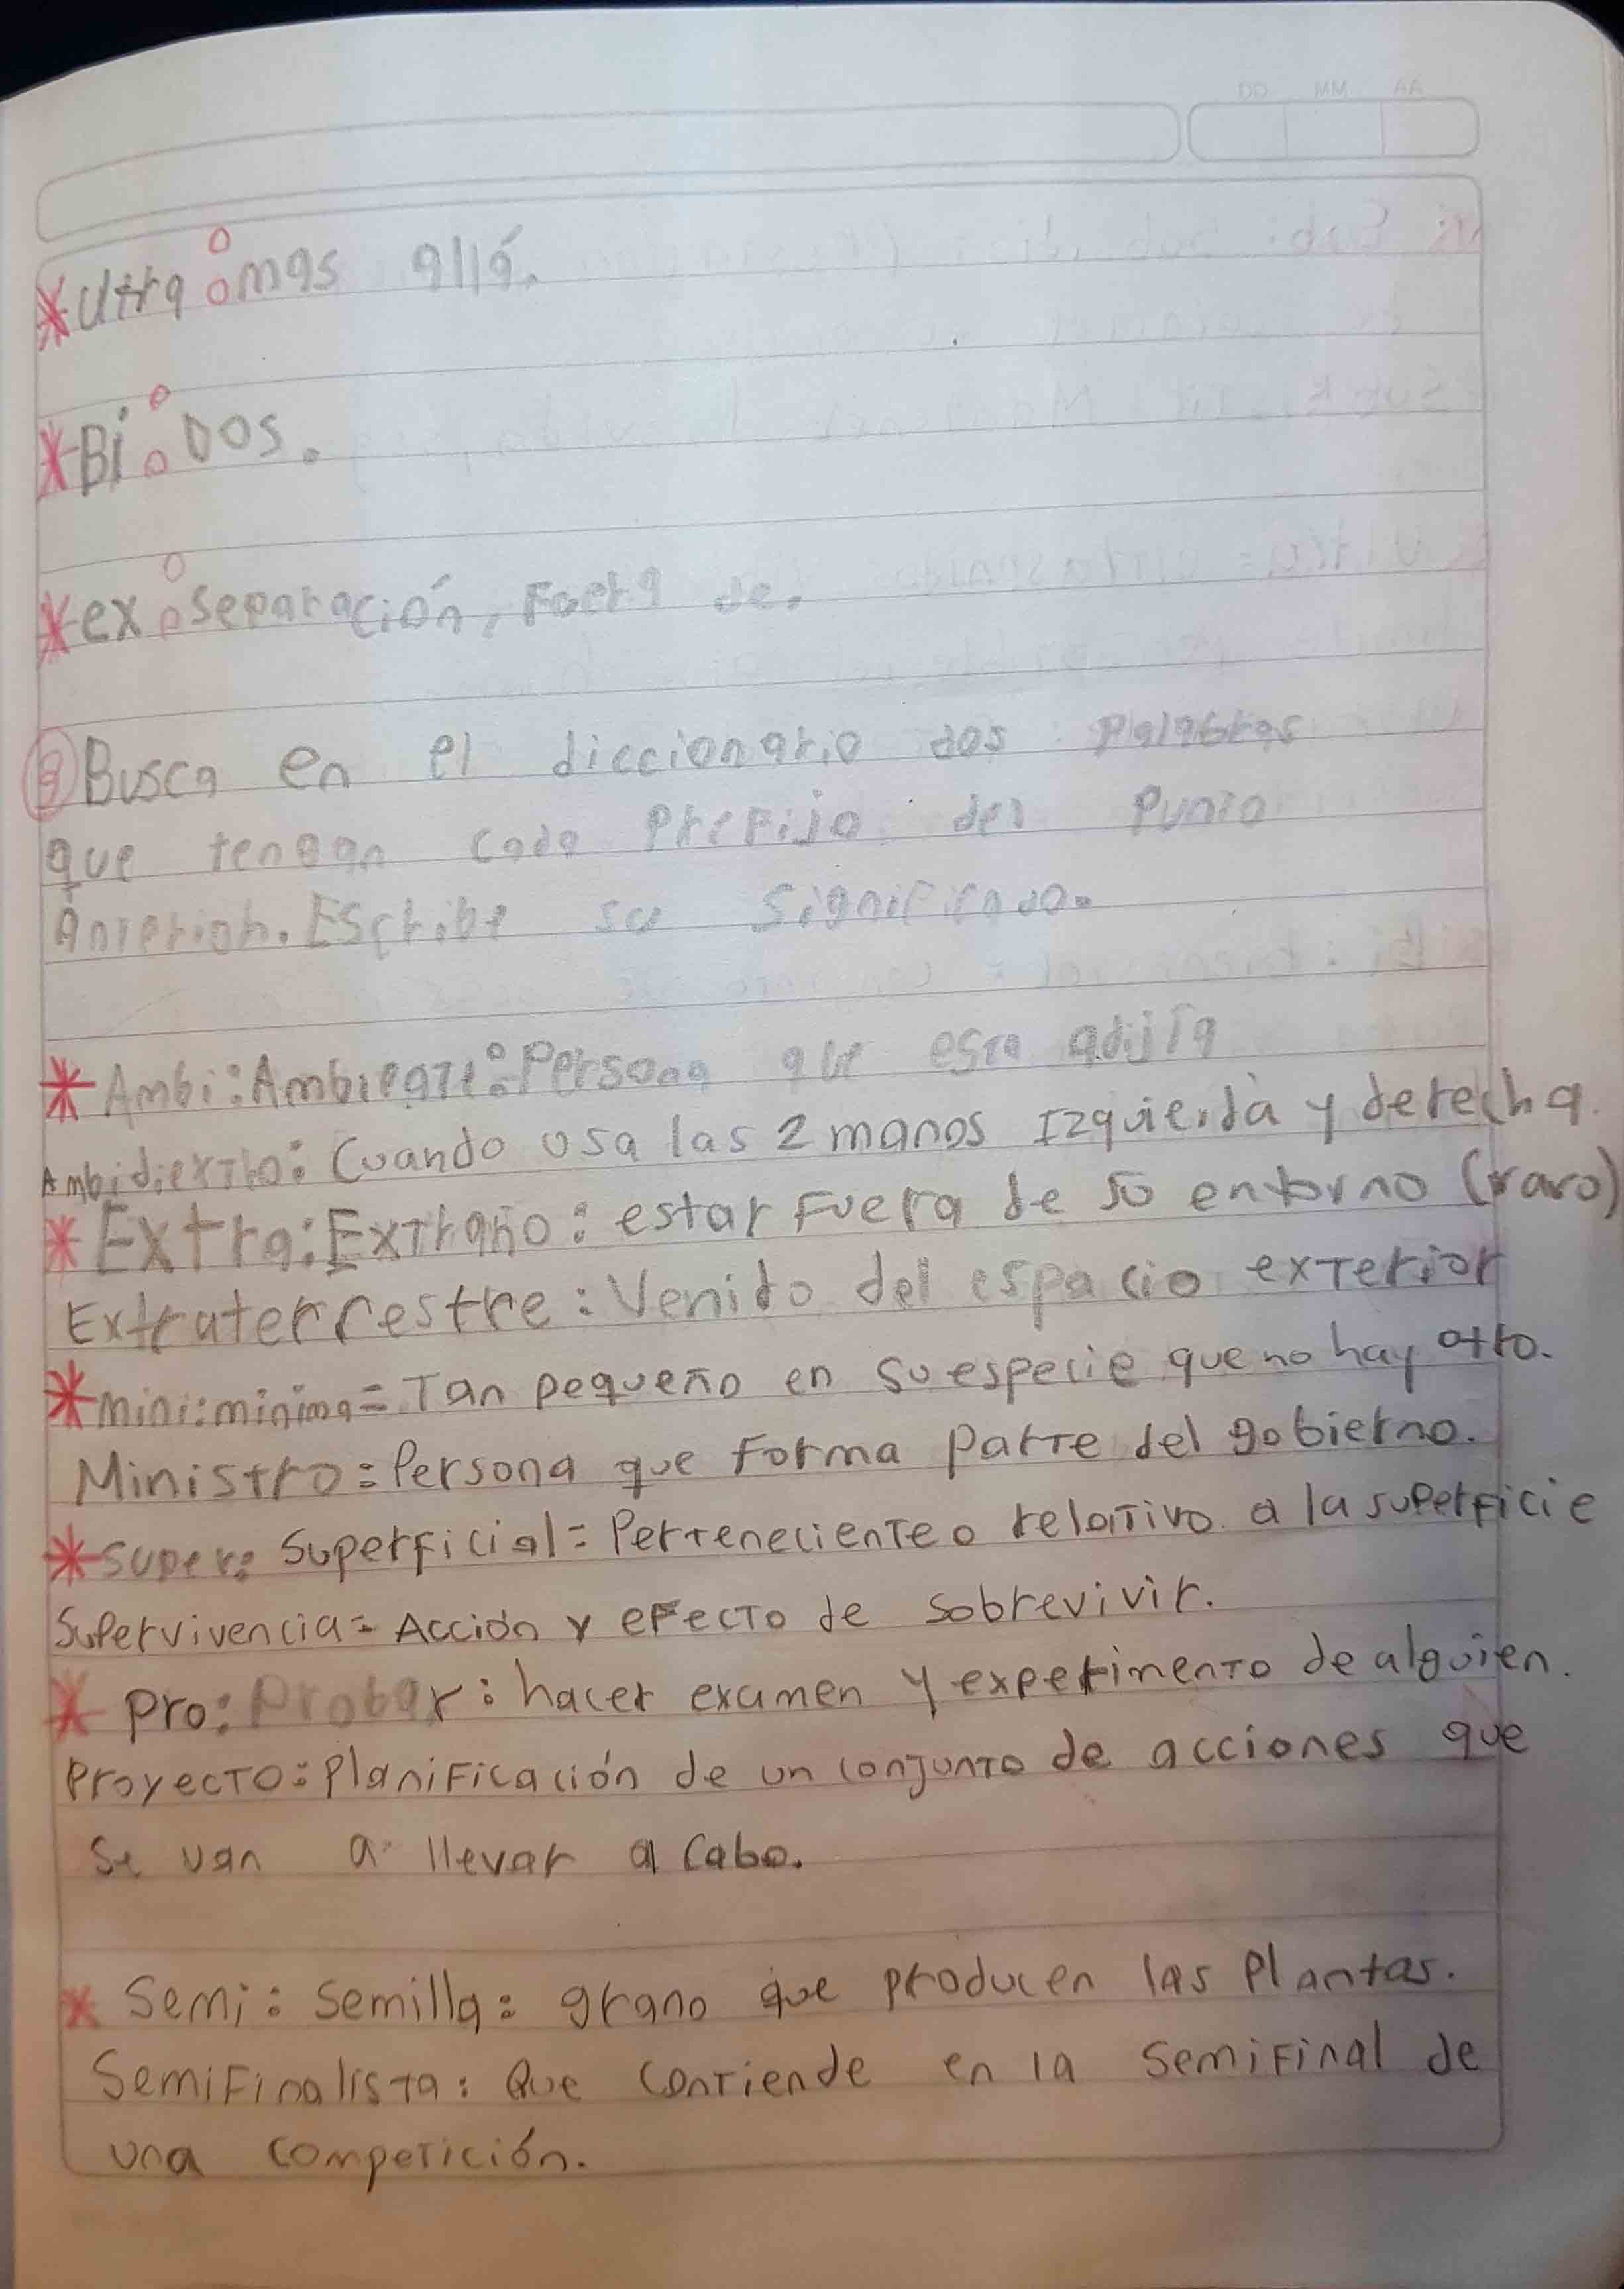 DD MM AA
* Ultra: mas allá.
* Bi: Dos.
* ex: separación, Fuera de.
Busca en el diccionario dos Palabras
que tengan cada Prefijo del Punto
Anterior. Escribe su significado.
* Ambi: Persona que esta
Ambidiextro: Cuando usa las 2 manos Izquierda y derecha.
* Extra: Extraño: estar Fuera de su entorno (raro)
Extraterrestre: Venido del espacio exterior
* mini: minima= Tan pequeño en su especie que no hay otro.
Ministro= Persona que Forma parte del gobierno.
* super: Superficial= Perteneciente o relativo a la superficie
Supervivencia= Acción y efecto de sobrevivir.
* Pro: Probar: hacer examen y experimento de alguien.
Proyecto: Planificación de un conjunto de acciones que
se van a llevar a cabo.
* Semi: Semilla: grano que producen las Plantas.
Semifinalista: Que contiende en la semifinal de
una competición.